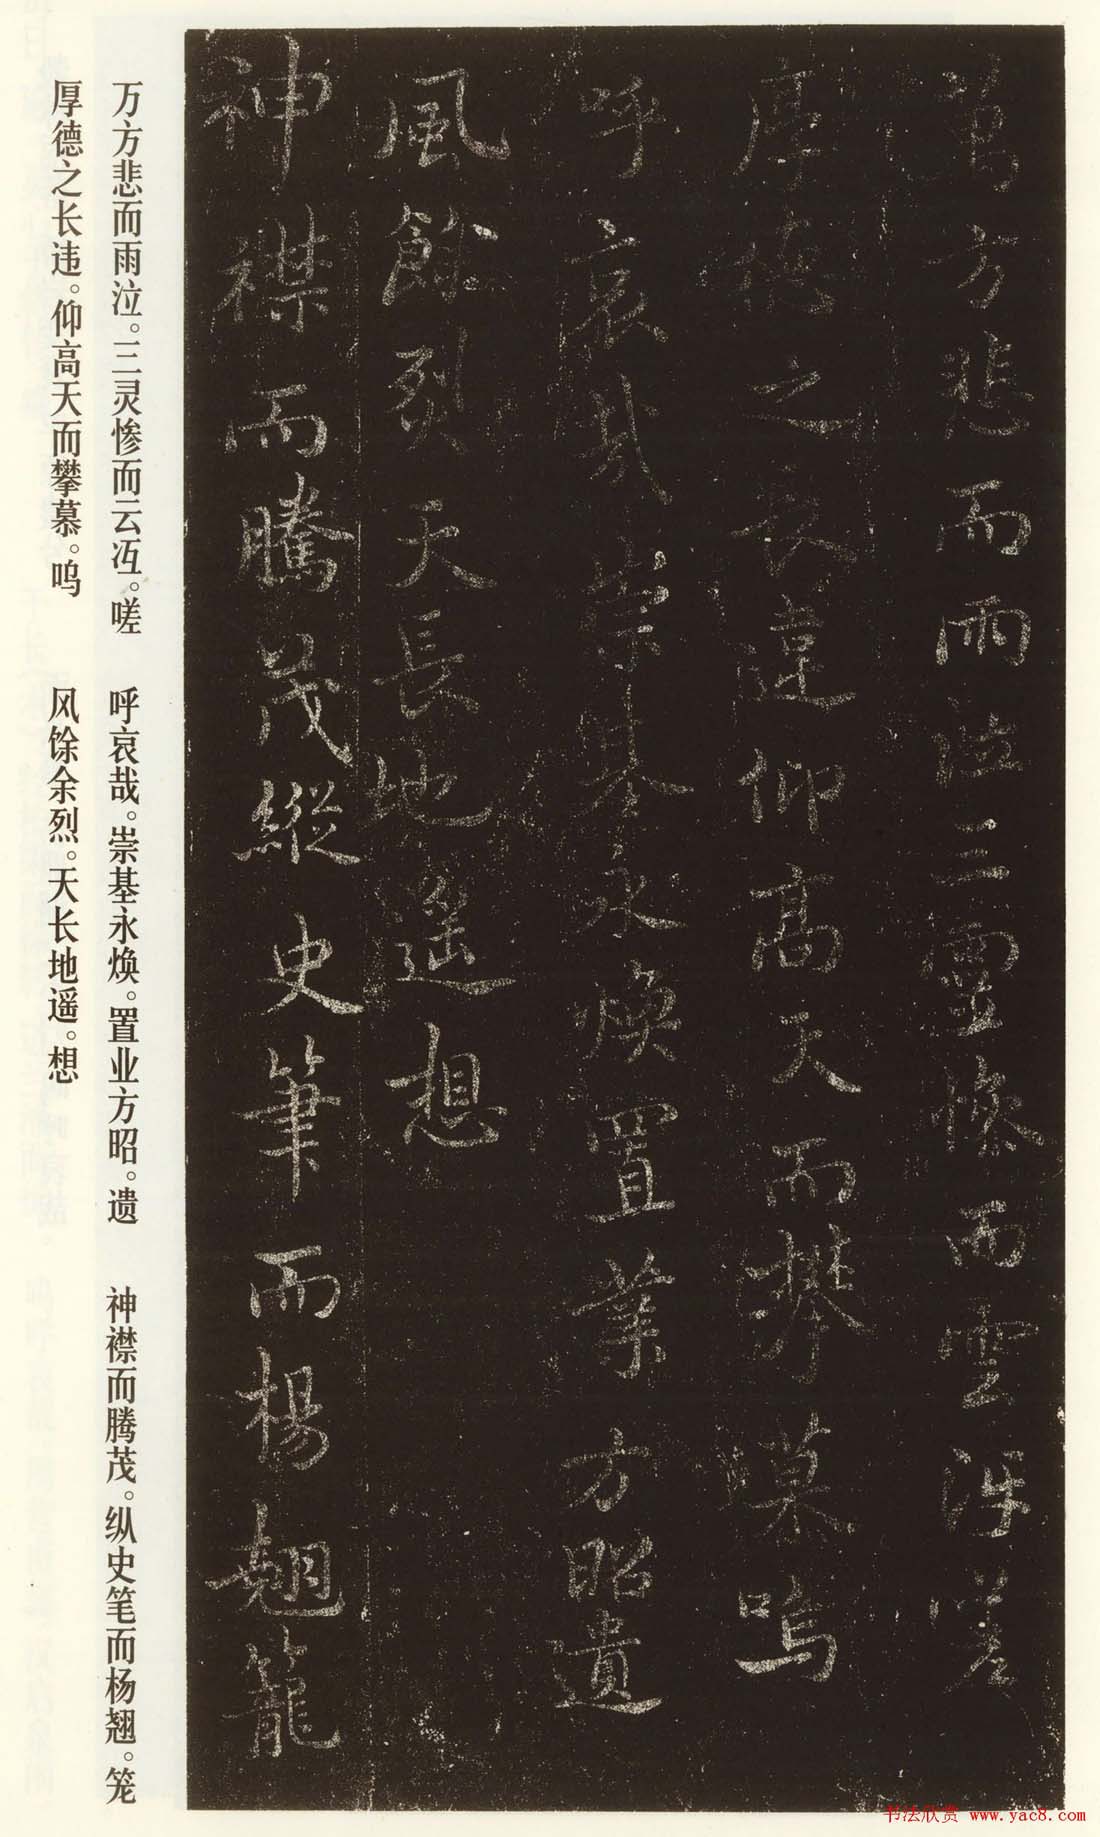 萬方悲而雨泣三靈慘而雲冱嗟
厚德之長違仰高天而攀慕嗚
呼哀哉崇基永煥置業方昭遺
風餘烈天長地遙想
神襟而騰茂縱史筆而楊翹籠
万方悲而雨泣。三灵惨而云冱。嗟
厚德之长违。仰高天而攀慕。呜
呼哀哉。崇基永焕。置业方昭。遗
风馀余烈。天长地遥。想
神襟而腾茂。纵史笔而杨翘。笼
书法欣赏 www.yac8.com